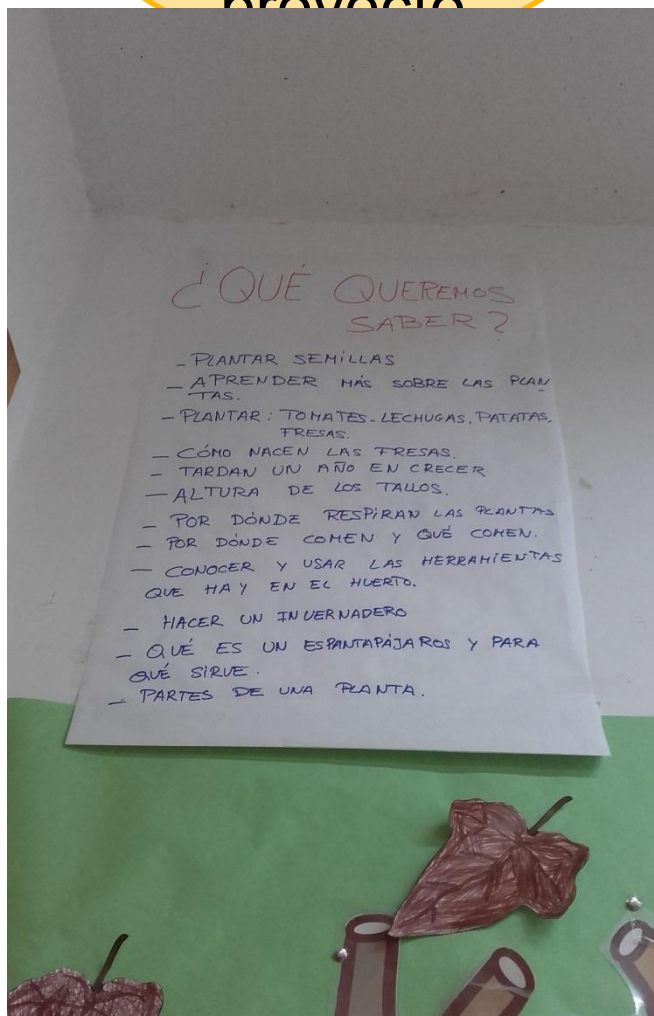 ¿QUÉ QUEREMOS
SABER?
- PLANTAR SEMILLAS
- APRENDER MÁS SOBRE LAS PLAN
TAS.
- PLANTAR: TOMATES-LECHUGAS, PATATAS,
FRESAS.
- CÓMO NACEN LAS FRESAS.
- TARDAN UN AÑO EN CRECER
- ALTURA DE LOS TALLOS.
- POR DÓNDE RESPIRAN LAS PLANTAS
- POR DÓNDE COMEN Y QUÉ COMEN.
- CONOCER Y USAR LAS HERRAMIENTAS
QUE HAY EN EL HUERTO.
- HACER UN INVERNADERO
- QUÉ ES UN ESPANTAPÁJAROS Y PARA
QUÉ SIRVE.
- PARTES DE UNA PLANTA.